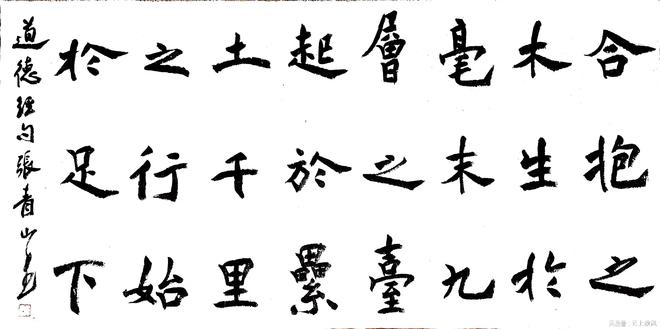 合抱之
木生於
毫末九
層之臺
起於纍
土千里
之行始
於足下
道德經句張青山書